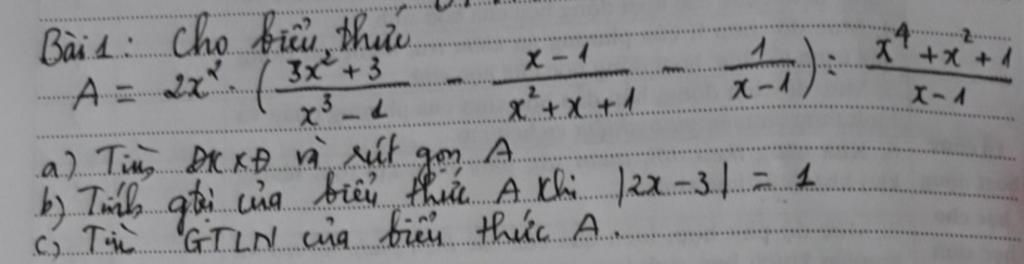 Bài 1: Cho biểu thức
A = 2x² · (\frac{3x² + 3}{x³ - 1} - \frac{x - 1}{x² + x + 1} - \frac{1}{x - 1}) : \frac{x⁴ + x² + 1}{x - 1}
a) Tìm ĐKXĐ và rút gọn A
b) Tính gtri của biểu thức A khi |2x - 3| = 1
c) Tìm GTLN của biểu thức A.